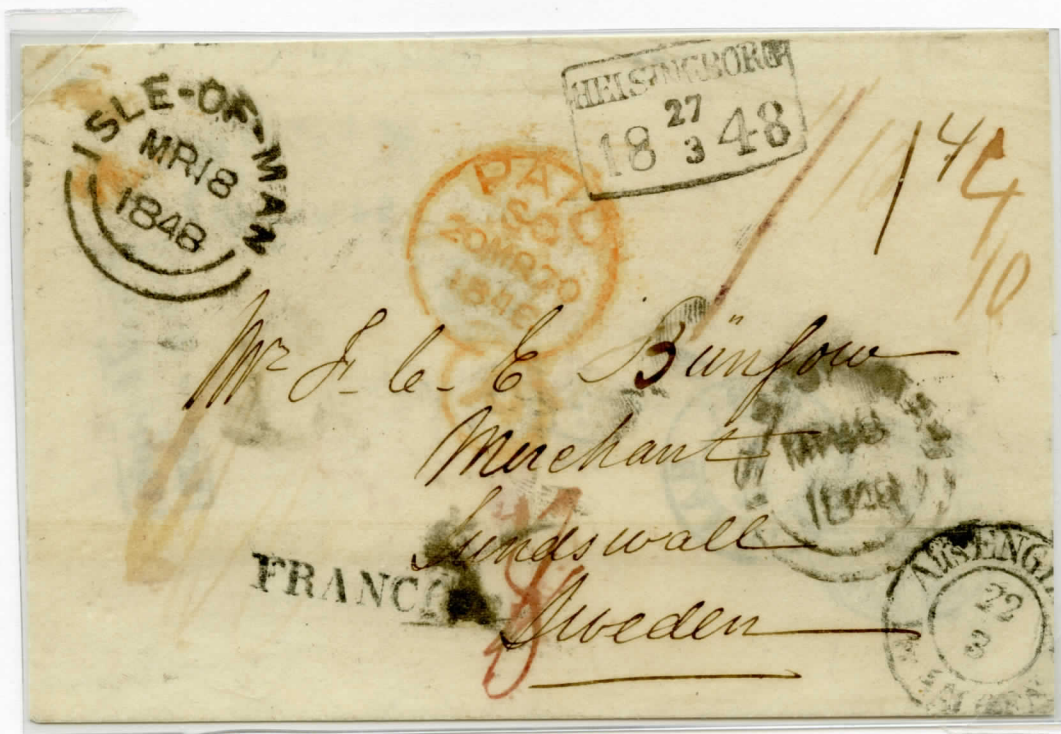 ISLE-OF-MAN
MR18
1848
HELSINGBORG
27
18 3 48
PAID
SO
20MR20
1848
1 4
4
10
Mr F. C. E Bünsow
Merchant
Sundswall
Sweden
FRANCO
AUS ENGL
22
3